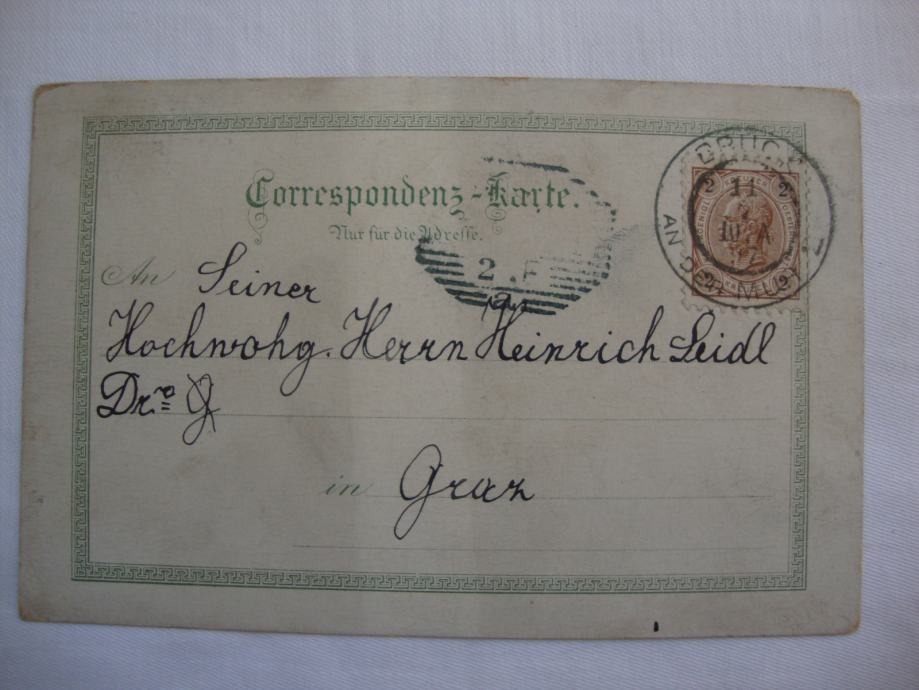 Correspondenz-Karte.
Nur für die Adresse.
BRUCK
AN DER MUR
11
10
2 2
2 2
2
An Seiner
Hochwohg. Herrn Heinrich Seidl
Dr.
in Graz